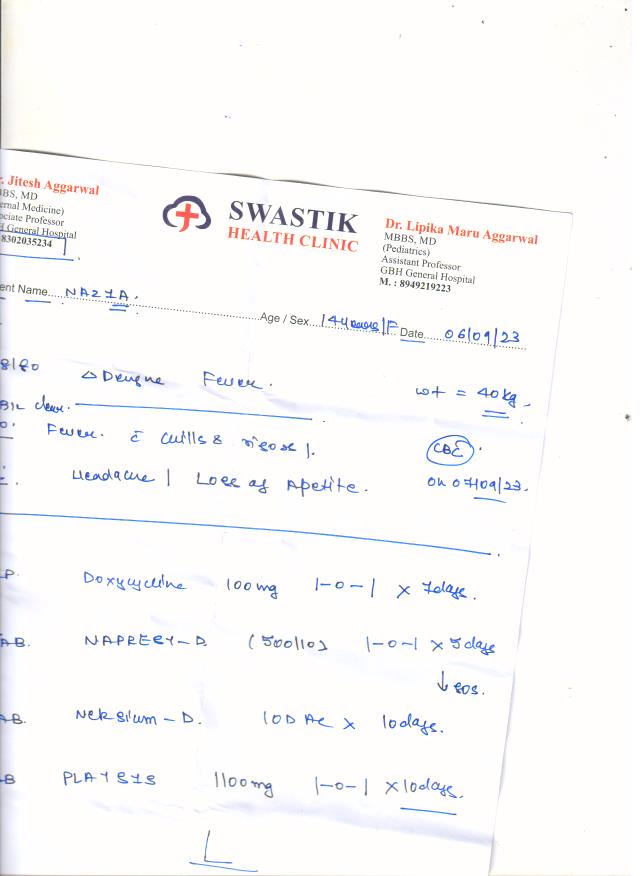 r. Jitesh Aggarwal
BBS, MD
ernal Medicine)
ociate Professor
H General Hospital
8302035234
SWASTIK
HEALTH CLINIC
Dr. Lipika Maru Aggarwal
MBBS, MD
(Pediatrics)
Assistant Professor
GBH General Hospital
M. : 8949219223
ent Name NAZIA.
Age / Sex 14 /F Date 06/09/23
8/80 △ Dengue Fever. wt = 40 kg.
B/L clear.
Fever. c̄ chills & rigors /. CBC
Headache / Loss of Apetite. on 07/09/23.
P. Doxycycline 100mg 1-0-1 x 7days.
AB. NAPRESY-D. (500/10) 1-0-1 x 5 days
↓ sos.
AB. Neksium-D. 1OD AC x 10days.
B PLAYSIS 1100mg 1-0-1 x 10days.